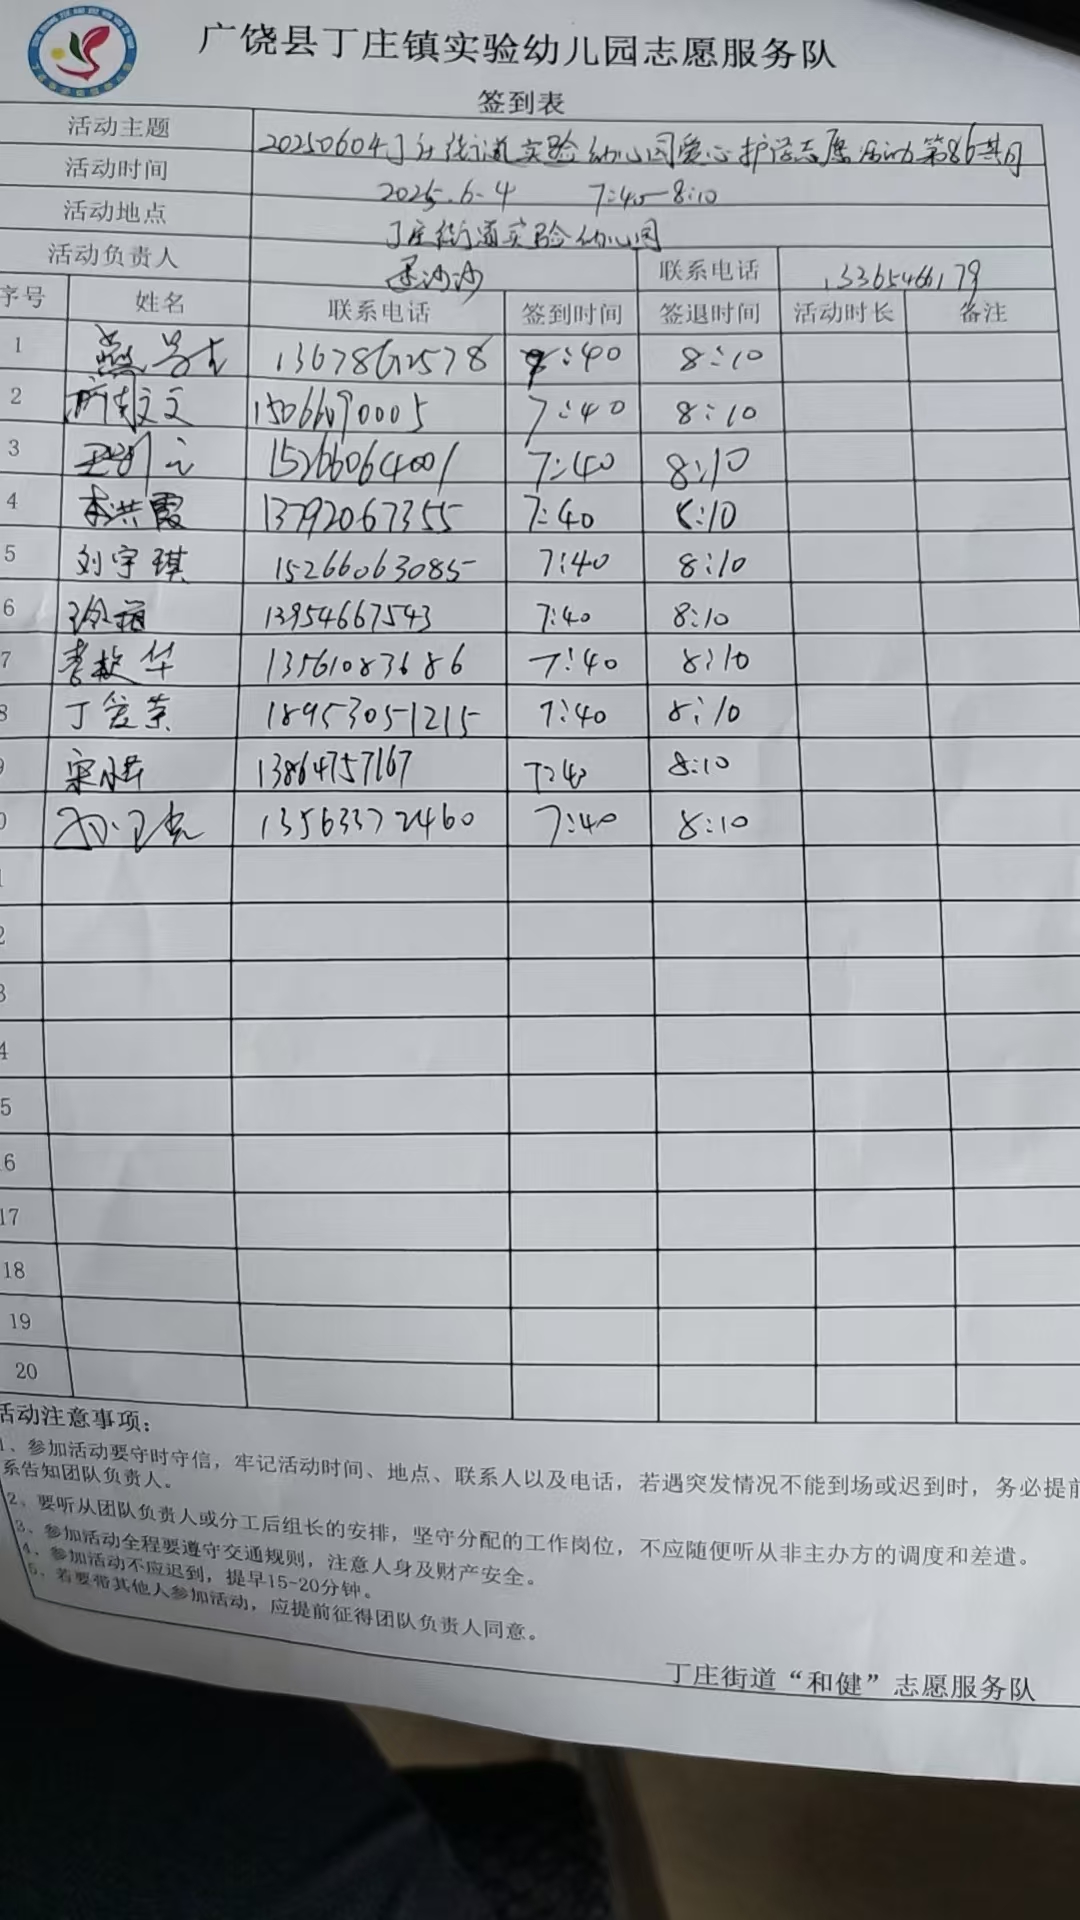 广饶县丁庄镇实验幼儿园志愿服务队
签到表
活动主题 20250604丁庄街道实验幼儿园爱心护学志愿活动第86期
活动时间 2025.6.4 7:40-8:10
活动地点 丁庄街道实验幼儿园
活动负责人 沙沙 联系电话 13365466179
序号 姓名 联系电话 签到时间 签退时间 活动时长 备注
1 燕 7:40 8:10
2 文文 15066090005 7:40 8:10
3 15266064001 7:40 8:10
4 李洪霞 13792067355 7:40 8:10
5 刘宇琪 15266063085 7:40 8:10
6 13954667543 7:40 8:10
7 李 华 13561083686 7:40 8:10
8 丁爱荣 18953051215 7:40 8:10
9 宋 13864757167 7:40 8:10
0 13563372460 7:40 8:10
1
2
3
4
5
16
17
18
19
20
活动注意事项：
1、参加活动要守时守信，牢记活动时间、地点、联系人以及电话，若遇突发情况不能到场或迟到时，务必提前
系告知团队负责人。
2、要听从团队负责人或分工后组长的安排，坚守分配的工作岗位，不应随便听从非主办方的调度和差遣。
3、参加活动全程要遵守交通规则，注意人身及财产安全。
4、参加活动不应迟到，提早15-20分钟。
5、若要带其他人参加活动，应提前征得团队负责人同意。
丁庄街道“和健”志愿服务队